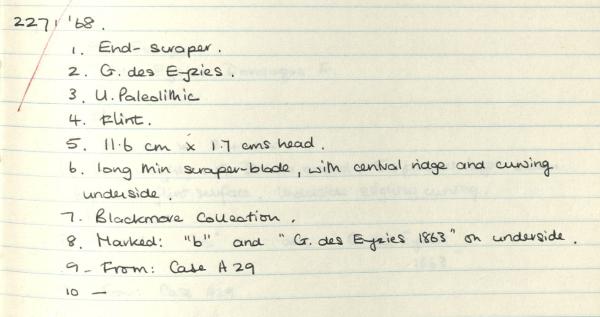 2271 '68.
1. End-scraper.
2. G. des Eyzies.
3. U. Paleolithic
4. Flint.
5. 11.6 cm x 1.7 cms head.
6. long thin scraper-blade, with central ridge and curving
underside.
7. Blackmore Collection.
8. Marked: "b" and "G. des Eyzies 1863" on underside.
9 - From: Case A 29
10 —